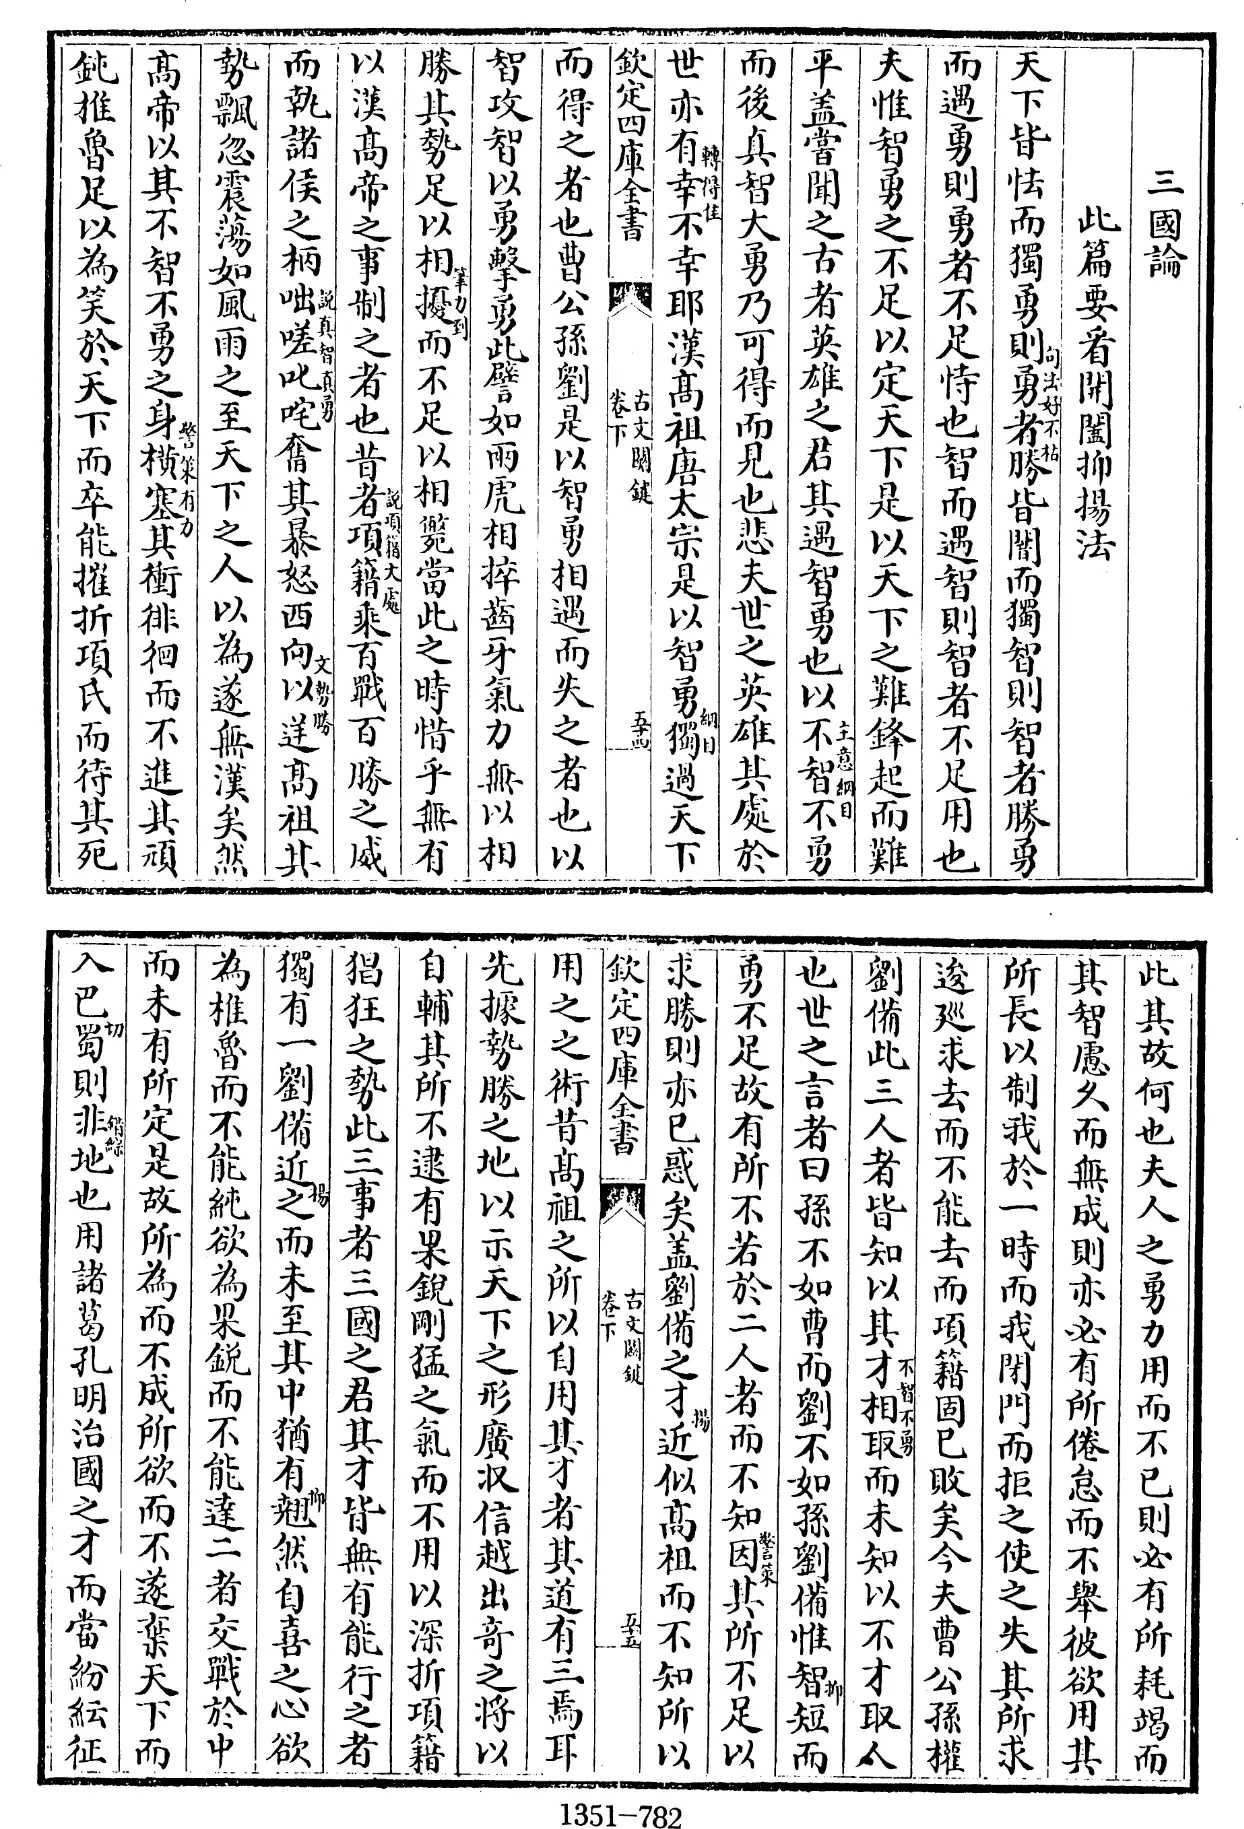 三國論
此篇要看開闔抑揚法
天下皆怯而獨勇則勇者勝皆闇而獨智則智者勝勇
句法好不枯
而遇勇則勇者不足恃也智而遇智則智者不足用也
夫惟智勇之不足以定天下是以天下之難鋒起而難
平盖嘗聞之古者英雄之君其遇智勇也以不智不勇
主意綱目
而後真智大勇乃可得而見也悲夫世之英雄其處於
世亦有幸不幸耶漢髙祖唐太宗是以智勇獨過天下
轉得佳
綱目
欽定四庫全書
古文關鍵
卷下
五十四
而得之者也曹公孫劉是以智勇相遇而失之者也以
智攻智以勇擊勇此譬如兩虎相捽齒牙氣力無以相
勝其勢足以相擾而不足以相斃當此之時惜乎無有
筆力到
以漢髙帝之事制之者也昔者項籍乘百戰百勝之威
說項籍大處
而執諸侯之柄咄嗟叱咤奮其暴怒西向以逆髙祖其
說真智真勇
文勢勝
勢飄忽震蕩如風雨之至天下之人以為遂無漢矣然
髙帝以其不智不勇之身橫塞其衝徘徊而不進其頑
警策有力
鈍推魯足以為笑於天下而卒能摧折項氏而待其死
此其故何也夫人之勇力用而不已則必有所耗竭而
其智慮久而無成則亦必有所倦怠而不舉彼欲用其
所長以制我於一時而我閉門而拒之使之失其所求
逡巡求去而不能去而項籍固已敗矣今夫曹公孫權
劉備此三人者皆知以其才相取而未知以不才取人
不智不勇
也世之言者曰孫不如曹而劉不如孫劉備惟智短而
抑
勇不足故有所不若於二人者而不知因其所不足以
警策
求勝則亦已惑矣盖劉備之才近似髙祖而不知所以
揚
欽定四庫全書
古文關鍵
卷下
五十五
用之之術昔髙祖之所以自用其才者其道有三焉耳
先據勢勝之地以示天下之形廣收信越出奇之將以
自輔其所不逮有果銳剛猛之氣而不用以深折項籍
猖狂之勢此三事者三國之君其才皆無有能行之者
獨有一劉備近之而未至其中猶有翹然自喜之心欲
揚
抑
為椎魯而不能純欲為果銳而不能達二者交戰於中
而未有所定是故所為而不成所欲而不遂棄天下而
入巴蜀則非地也用諸葛孔明治國之才而當紛紜征
切
錯綜
1351-782